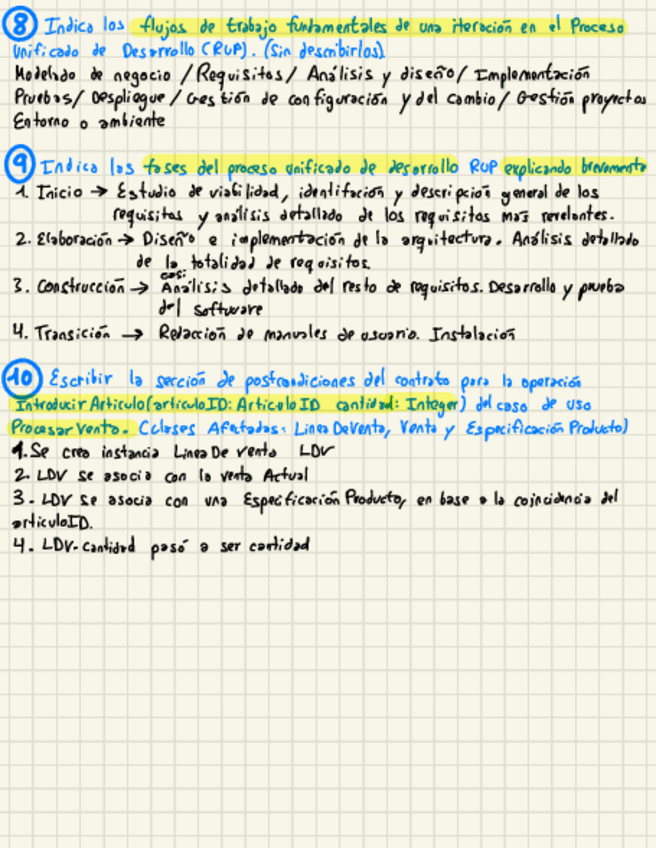 8 Indica los flujos de trabajo fundamentales de una iteración en el Proceso
Unificado de Desarrollo (RUP). (Sin describirlos)
Modelado de negocio / Requisitos / Análisis y diseño / Implementación
Pruebas / Despliegue / Gestión de configuración y del cambio / Gestión proyectos
Entorno o ambiente
9 Indica las fases del proceso unificado de desarrollo RUP explicando brevemente
1. Inicio → Estudio de viabilidad, identifación y descripción general de los
requisitos y análisis detallado de los requisitos mas revelantes.
2. Elaboración → Diseño e implementación de la arquitectura. Análisis detallado
de la casi totalidad de requisitos.
3. Construcción → Análisis detallado del resto de requisitos. Desarrollo y prueba
del software
4. Transición → Redacción de manuales de usuario. Instalación
10 Escribir la sección de postcondiciones del contrato para la operación
Introducir Articulo (articuloID: ArticuloID cantidad: Integer) del caso de uso
Procesar Venta. (Clases Afectadas: LineaDeVenta, Venta y EspecificaciónProducto)
1. Se crea instancia LineaDeVenta LDV
2. LDV se asocia con la venta Actual
3. LDV se asocia con una EspecificaciónProducto, en base a la coincidencia del
articuloID.
4. LDV.cantidad pasó a ser cantidad